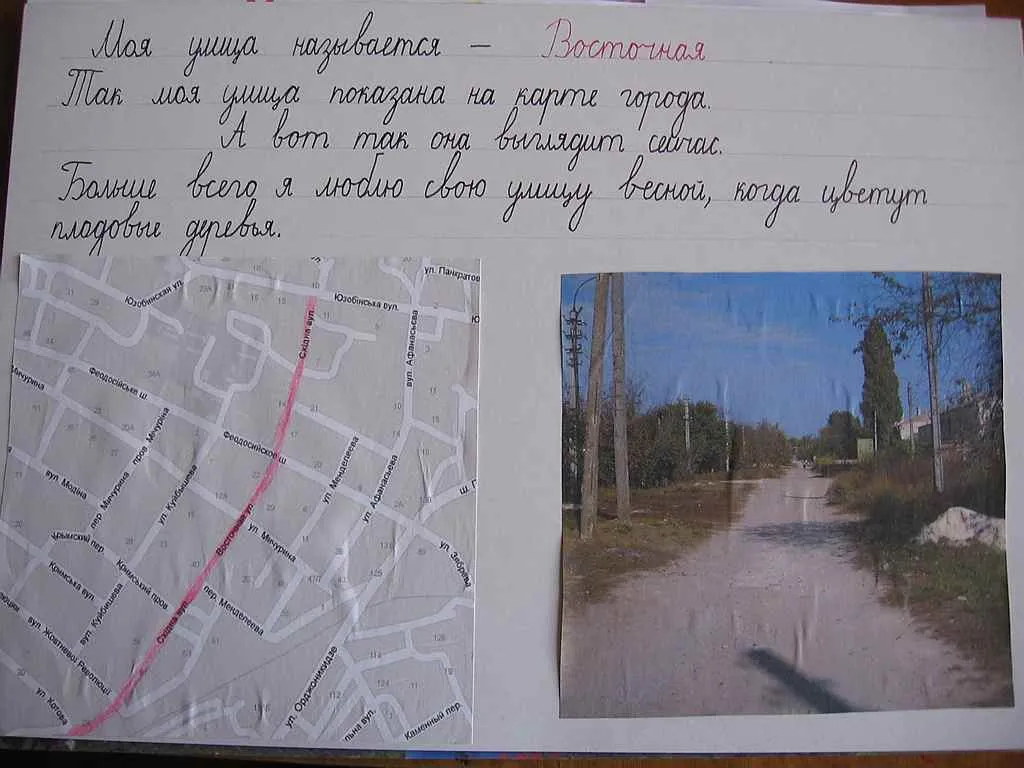 Моя улица называется – Восточная
Так моя улица показана на карте города.
А вот так она выглядит сейчас.
Больше всего я люблю свою улицу весной, когда цветут
плодовые деревья.
ул. Панкратов
Юзобинская ул.
Юзобінська вул.
Східна вул.
вул. Афанасьєва
Мичурина
Феодосійське ш.
пров Мечуріна
Феодосийское ш
ул. Менделеева
ул. Афанасьева
вул. Модіна
пер. Мичурина
ул. Куйбышева
Восточная ул
ул. Мичурина
Крымский пер
Кримський пров
Кримська вул.
вул. Куйбишева
пер. Менделеева
Східна вул.
вул. Жовтневої Революції
ул. Котова
ул. Орджоникидзе
льна вул.
Каменный пер.